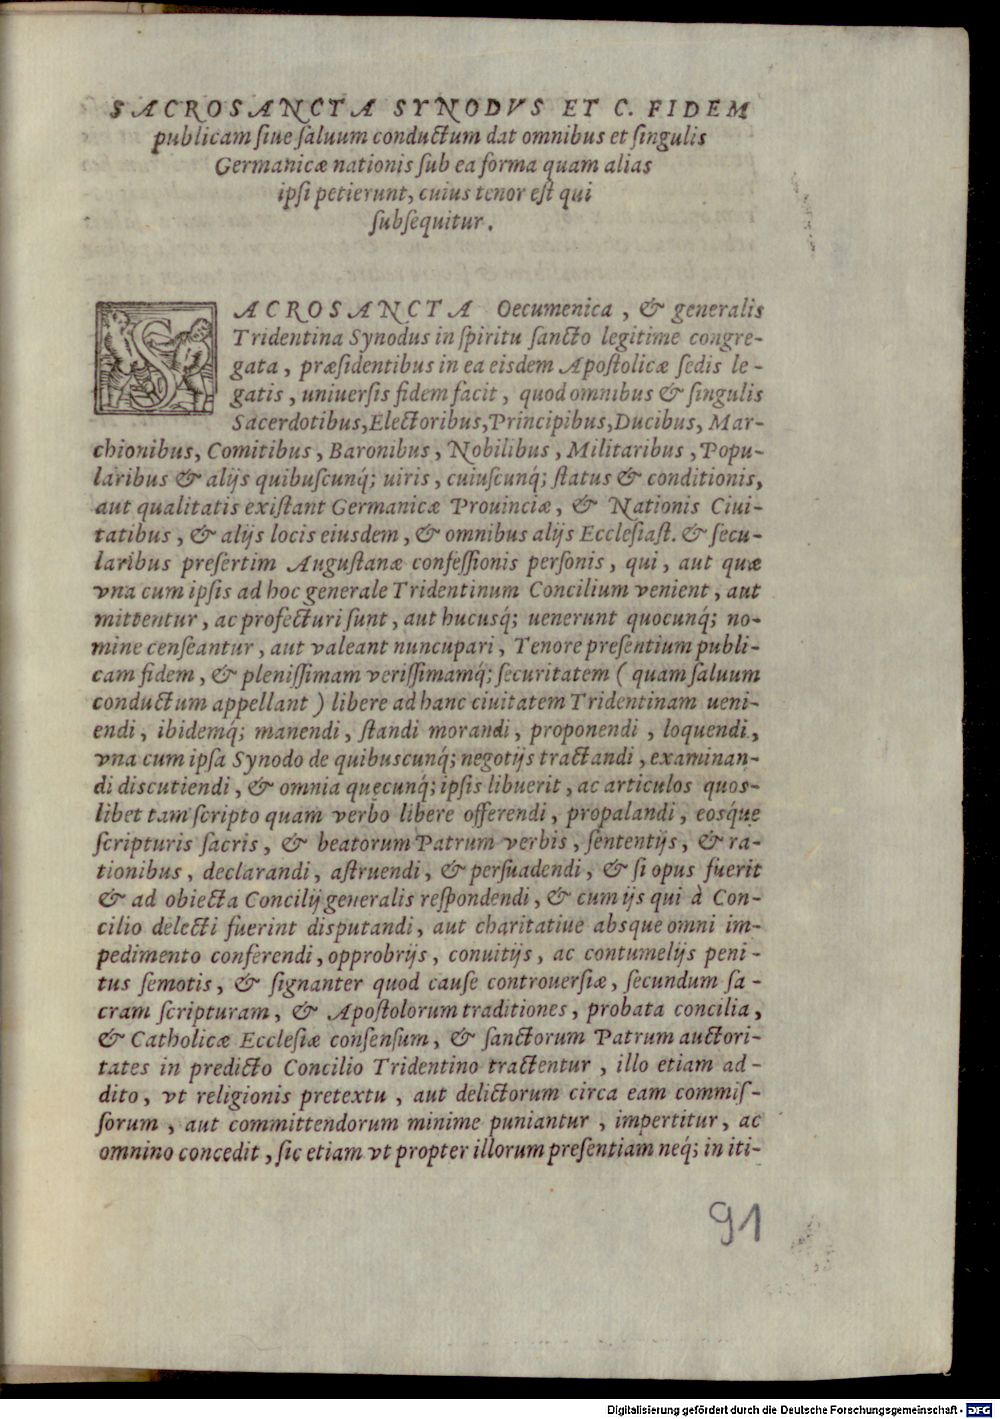 SACROSANCTA SYNODVS ET C. FIDEM
publicam ſiue ſaluum conductum dat omnibus et ſingulis
Germanicæ nationis ſub ea forma quam alias
ipſi petierunt, cuius tenor eſt qui
ſubſequitur.
SACROSANCTA Oecumenica, & generalis
Tridentina Synodus in ſpiritu ſancto legitime congre-
gata, præſidentibus in ea eiſdem Apoſtolicæ ſedis le-
gatis, uniuerſis fidem facit, quod omnibus & ſingulis
Sacerdotibus, Electoribus, Principibus, Ducibus, Mar-
chionibus, Comitibus, Baronibus, Nobilibus, Militaribus, Popu-
laribus & alijs quibuſcunq́; uiris, cuiuſcunq́; ſtatus & conditionis,
aut qualitatis exiſtant Germanicæ Prouinciæ, & Nationis Ciui-
tatibus, & alijs locis eiuſdem, & omnibus alijs Eccleſiaſt. & ſecu-
laribus preſertim Auguſtanæ confeſſionis perſonis, qui, aut quæ
vna cum ipſis ad hoc generale Tridentinum Concilium venient, aut
mittentur, ac profecturi ſunt, aut hucuſq́; uenerunt quocunq́; no-
mine cenſeantur, aut valeant nuncupari, Tenore preſentium publi-
cam fidem, & pleniſſimam veriſſimamq́; ſecuritatem (quam ſaluum
conductum appellant) libere ad hanc ciuitatem Tridentinam ueni-
endi, ibidemq́; manendi, ſtandi morandi, proponendi, loquendi,
vna cum ipſa Synodo de quibuſcunq́; negotijs tractandi, examinan-
di diſcutiendi, & omnia quęcunq́; ipſis libuerit, ac articulos quos-
libet tam ſcripto quam verbo libere offerendi, propalandi, eosq́ue
ſcripturis ſacris, & beatorum Patrum verbis, ſententijs, & ra-
tionibus, declarandi, aſtruendi, & perſuadendi, & ſi opus fuerit
& ad obiecta Concilij generalis reſpondendi, & cum ijs qui à Con-
cilio delecti fuerint diſputandi, aut charitatiue absque omni im-
pedimento conferendi, opprobrijs, conuitijs, ac contumelijs peni-
tus ſemotis, & ſignanter quod cauſe controuerſiæ, ſecundum ſa-
cram ſcripturam, & Apoſtolorum traditiones, probata concilia,
& Catholicæ Eccleſiæ conſenſum, & ſanctorum Patrum auctori-
tates in predicto Concilio Tridentino tractentur, illo etiam ad-
dito, vt religionis pretextu, aut delictorum circa eam commiſ-
ſorum, aut committendorum minime puniantur, impertitur, ac
omnino concedit, ſic etiam vt propter illorum preſentiam neq́; in iti-
91
Digitalisierung gefördert durch die Deutsche Forschungsgemeinschaft - DFG